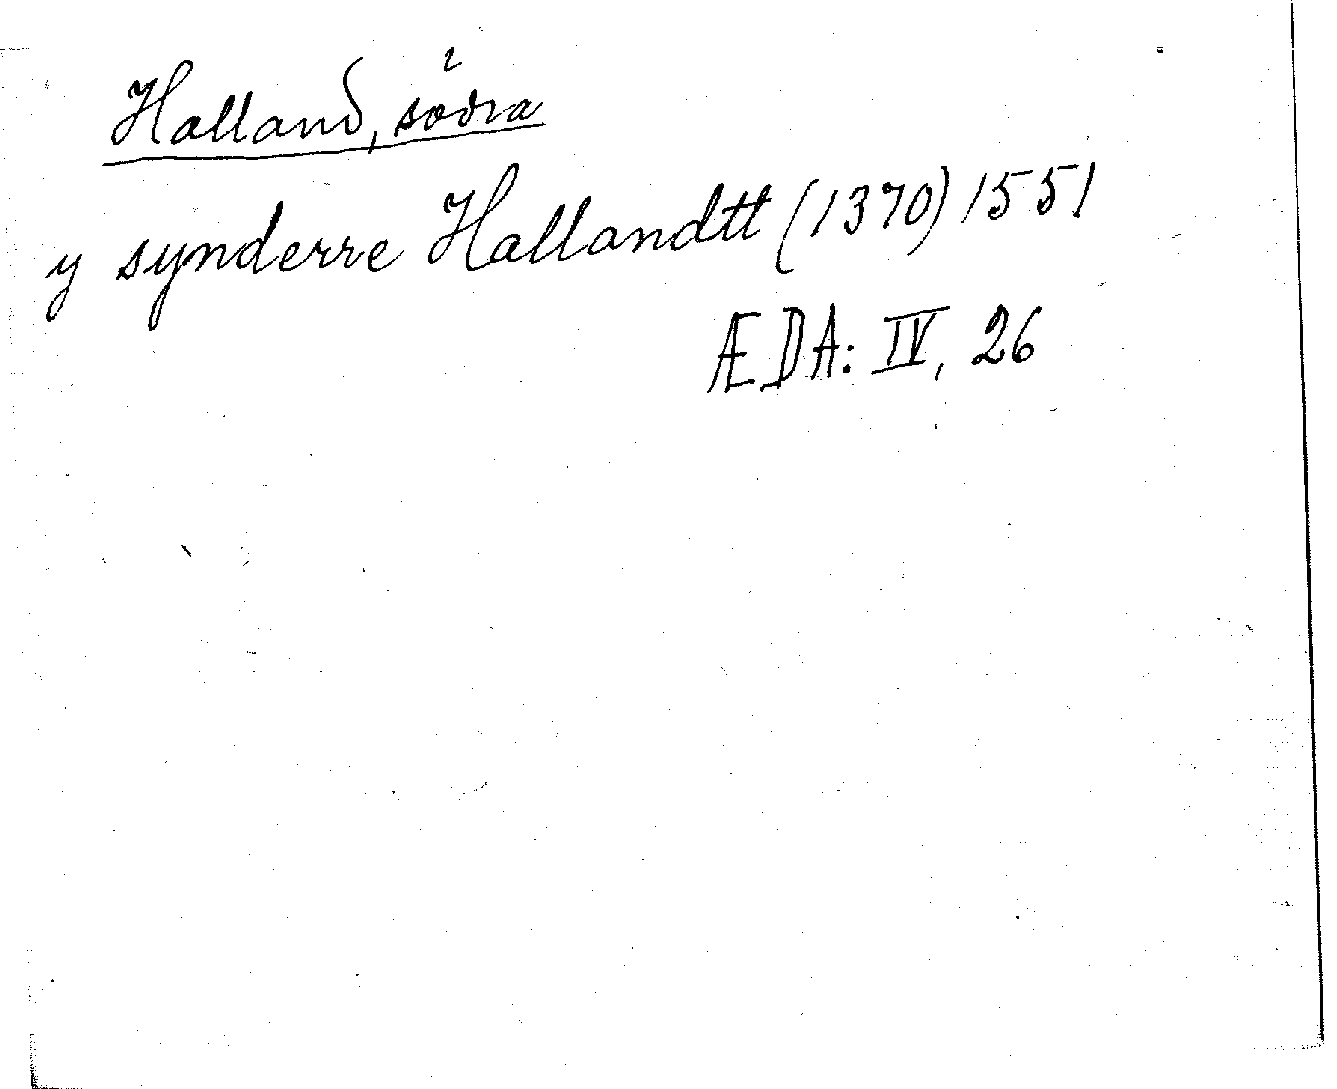 Halland, södra
y synderre Hallandtt (1370) 1551
ÆDA: IV, 26